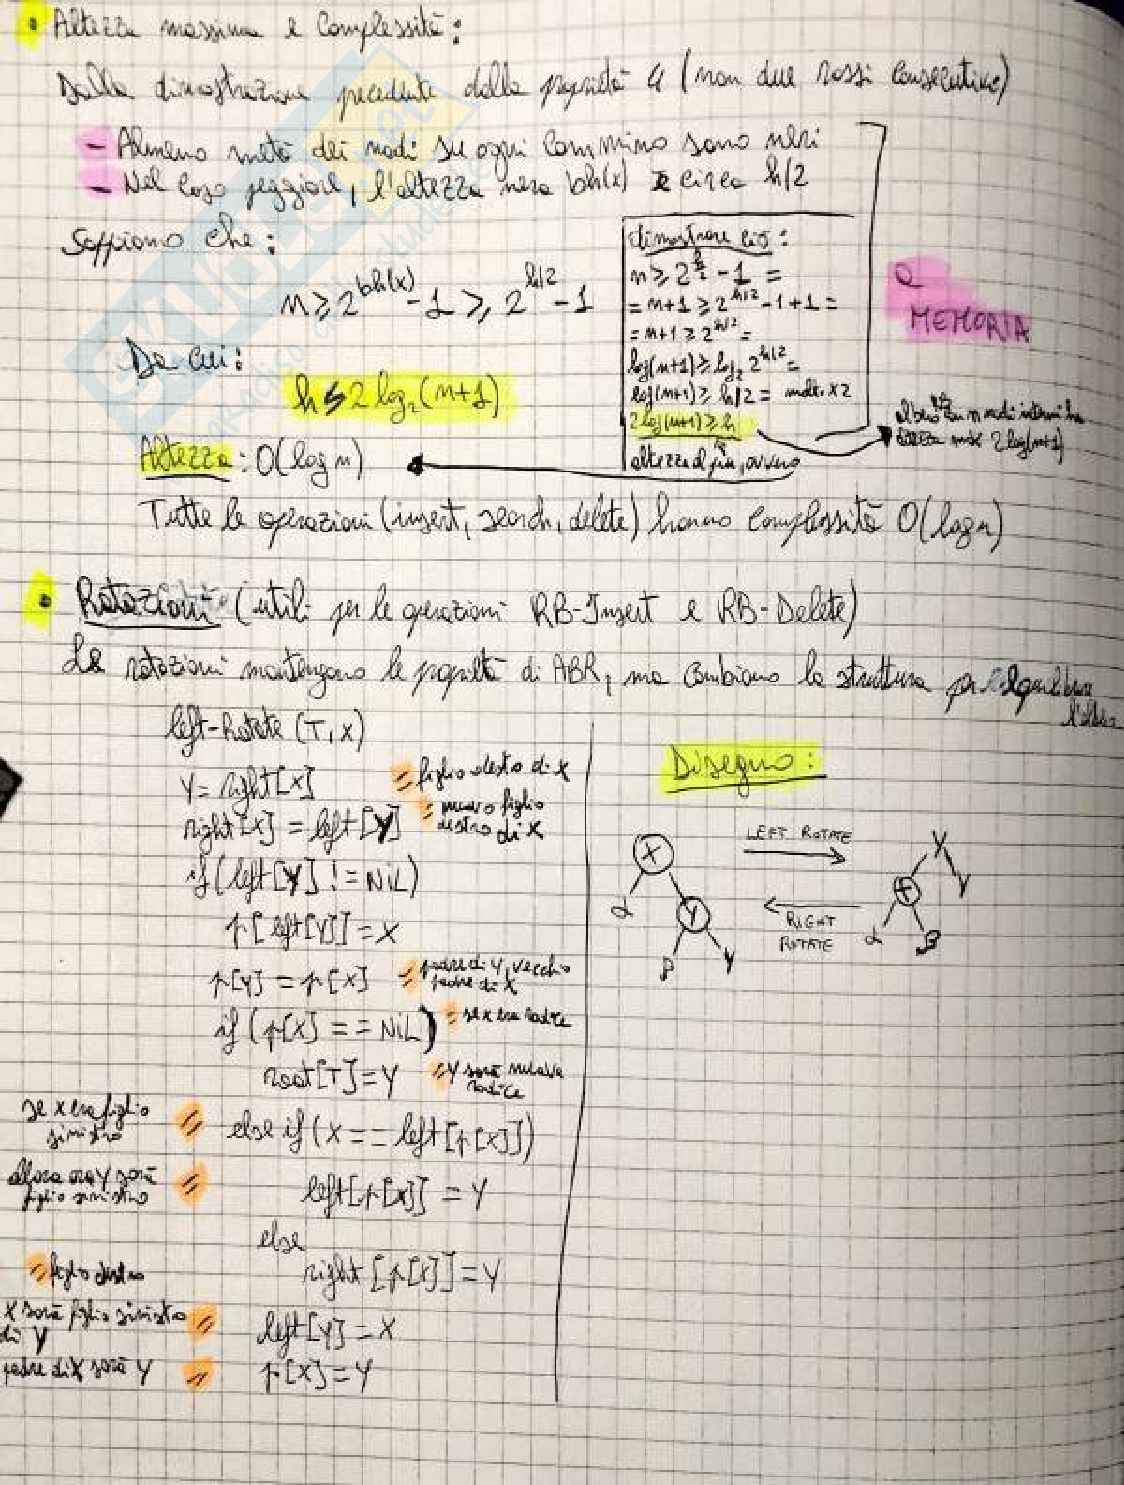 • Altezza massima e Complessità:
Dalla dimostrazione precedente dalla proprietà 4 (non due rossi consecutive)
- Almeno metà dei nodi su ogni cammino sono neri
- Nel caso peggiore, l'altezza nera bh(x) è circa h/2
Sappiamo che:
n ≥ 2^bh(x) - 1 ≥ 2^h/2 - 1
Da cui:
h ≤ 2 log₂(n+1)
dimostrare ciò:
n ≥ 2^h/2 - 1 =
= n+1 ≥ 2^h/2 - 1 + 1 =
= n+1 ≥ 2^h/2 =
log(n+1) ≥ log₂ 2^h/2 =
log(n+1) ≥ h/2 = molt. x2
2 log(n+1) ≥ h
altezza al più, ovvero
a
MEMORIA
albero con n nodi interni ha
altezza max 2 log(n+1)
Altezza: O(log n)
Tutte le operazioni (insert, search, delete) hanno complessità O(log n)
• Rotazioni (utili per le operazioni RB-Insert e RB-Delete)
Le rotazioni mantengono le proprietà di ABR, ma cambiano la struttura per
l'albero
left-Rotate (T, x)
Y = right[X] = figlio destro di X
right[X] = left[Y] = nuovo figlio
destro di X
if (left[Y] != NiL)
p[left[Y]] = X
p[Y] = p[X] = padre di Y, vecchio
padre di X
if (p[X] == NiL) = se x era radice
root[T] = Y = Y sarà nuova
radice
se x era figlio
sinistro = else if (X == left[p[X]])
allora ora Y sarà
figlio sinistro = left[p[X]] = Y
else
= figlio destro right[p[X]] = Y
X sarà figlio sinistro
di Y = left[Y] = X
padre di X sarà Y = p[X] = Y
Disegno:
X
α
Y
β
γ
LEFT ROTATE
RIGHT
ROTATE
Y
X
γ
α
β